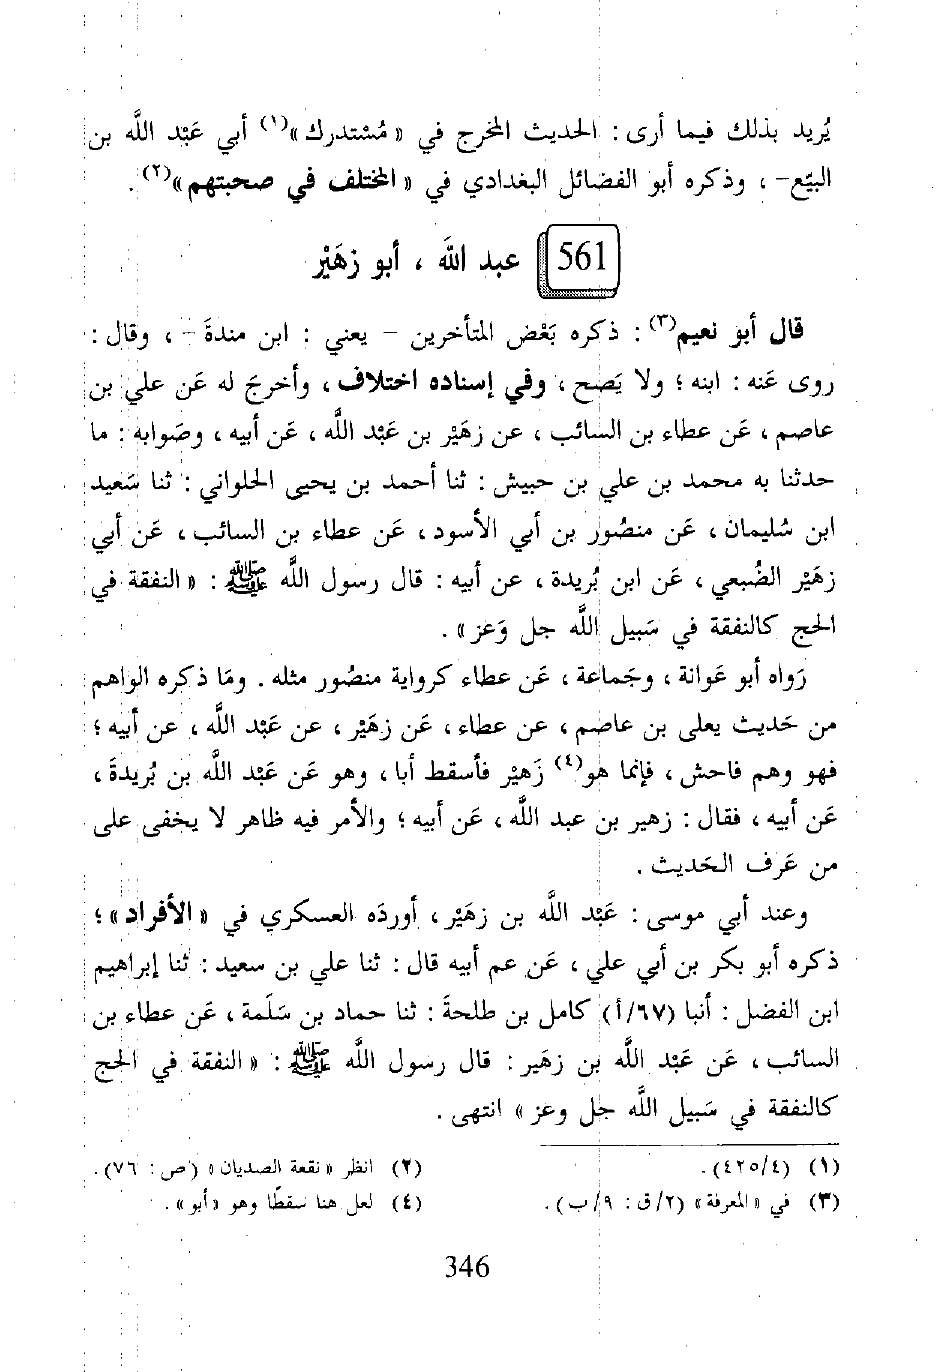 يُريد بذلك فيما أرى : الحديث المخرج في « مُسْتدرك »(١) أبي عَبْد اللَّه بن
البيِّع- ، وذكره أبو الفضائل البغدادي في « المختلف في صحبتهم »(٢) .
561 عبد اللَّه ، أبو زهَيْر
قال أبو نعيم(٣) : ذكره بَعْض المتأخرين - يعني : ابن مندةَ - ، وقال :
روى عَنه : ابنه ؛ ولا يَصح ، وفي إسناده اختلاف ، وأخرجَ له عَن علي بن
عاصم ، عَن عطاء بن السائب ، عن زهَيْر بن عَبْد اللَّه ، عَن أبيه ، وصَوابه : ما
حدثنا به محمد بن علي بن حبيش : ثنا أحمد بن يحيى الحلواني : ثنا سَعيد
ابن سُليمان ، عَن منصُور بن أبي الأسود ، عَن عطاء بن السائب ، عَن أبي
زهَيْر الضُبعي ، عَن ابن بُريدة ، عن أبيه : قال رسول اللَّه ﷺ : « النفقة في
الحج كالنفقة في سَبيل اللَّه جل وَعز » .
رَواه أبو عَوانة ، وجَماعة ، عَن عطاء كرواية منصُور مثله . ومَا ذكره الواهم
من حَديث يعلى بن عاصم ، عن عطاء ، عَن زهَيْر ، عن عَبْد اللَّه ، عن أبيه ؛
فهو وهم فاحش ، فإنما هو(٤) زَهيْر فأسقط أبا ، وهو عَن عَبْد اللَّه بن بُريدةَ ،
عَن أبيه ، فقال : زهير بن عبد اللَّه ، عَن أبيه ؛ والأمر فيه ظاهر لا يخفى على
من عَرف الحَديث .
وعند أبي موسى : عَبْد اللَّه بن زهَيْر ، أوردَه العسكري في « الأفراد » ؛
ذكره أبو بكر بن أبي علي ، عَن عم أبيه قال : ثنا علي بن سعيد : ثنا إبراهيم
ابن الفضل : أنبا (٦٧/أ) كامل بن طلحةَ : ثنا حماد بن سَلَمة ، عَن عطاء بن
السائب ، عَن عَبْد اللَّه بن زهَير : قال رسول اللَّه ﷺ : « النفقة في الحج
كالنفقة في سَبيل اللَّه جل وعز » انتهى .
(١) (٤/٤٢٥) .
(٢) انظر « نقعة الصديان » (ص : ٧٦) .
(٣) في « المعرفة » (٢/ق : ٩/ب) .
(٤) لعل هنا سقطًا وهو « أبو » .
346